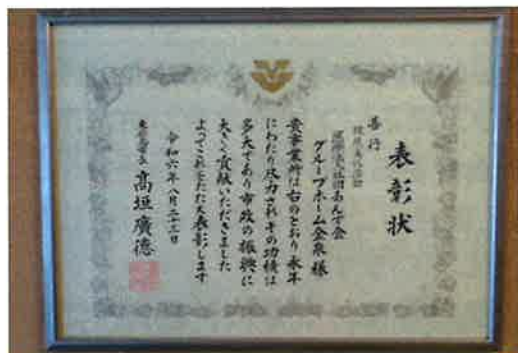 表彰状
善行
環境美化活動
医療法人社団あんず会
グループホーム金泉様
貴事業所は右のとおり永年
にわたり尽力されその功績は
多大であり市政の振興に
大きく貢献いただきました
よってこれをたたえ表彰します
令和六年八月二十三日
東広島市長 髙垣廣徳